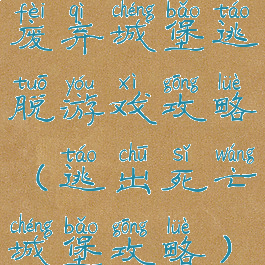 fèi qì chéng bǎo táo
废弃城堡逃
tuō yóu xì gōng lüè
脱游戏攻略
táo chū sǐ wáng
（逃出死亡
chéng bǎo gōng lüè
城堡攻略）